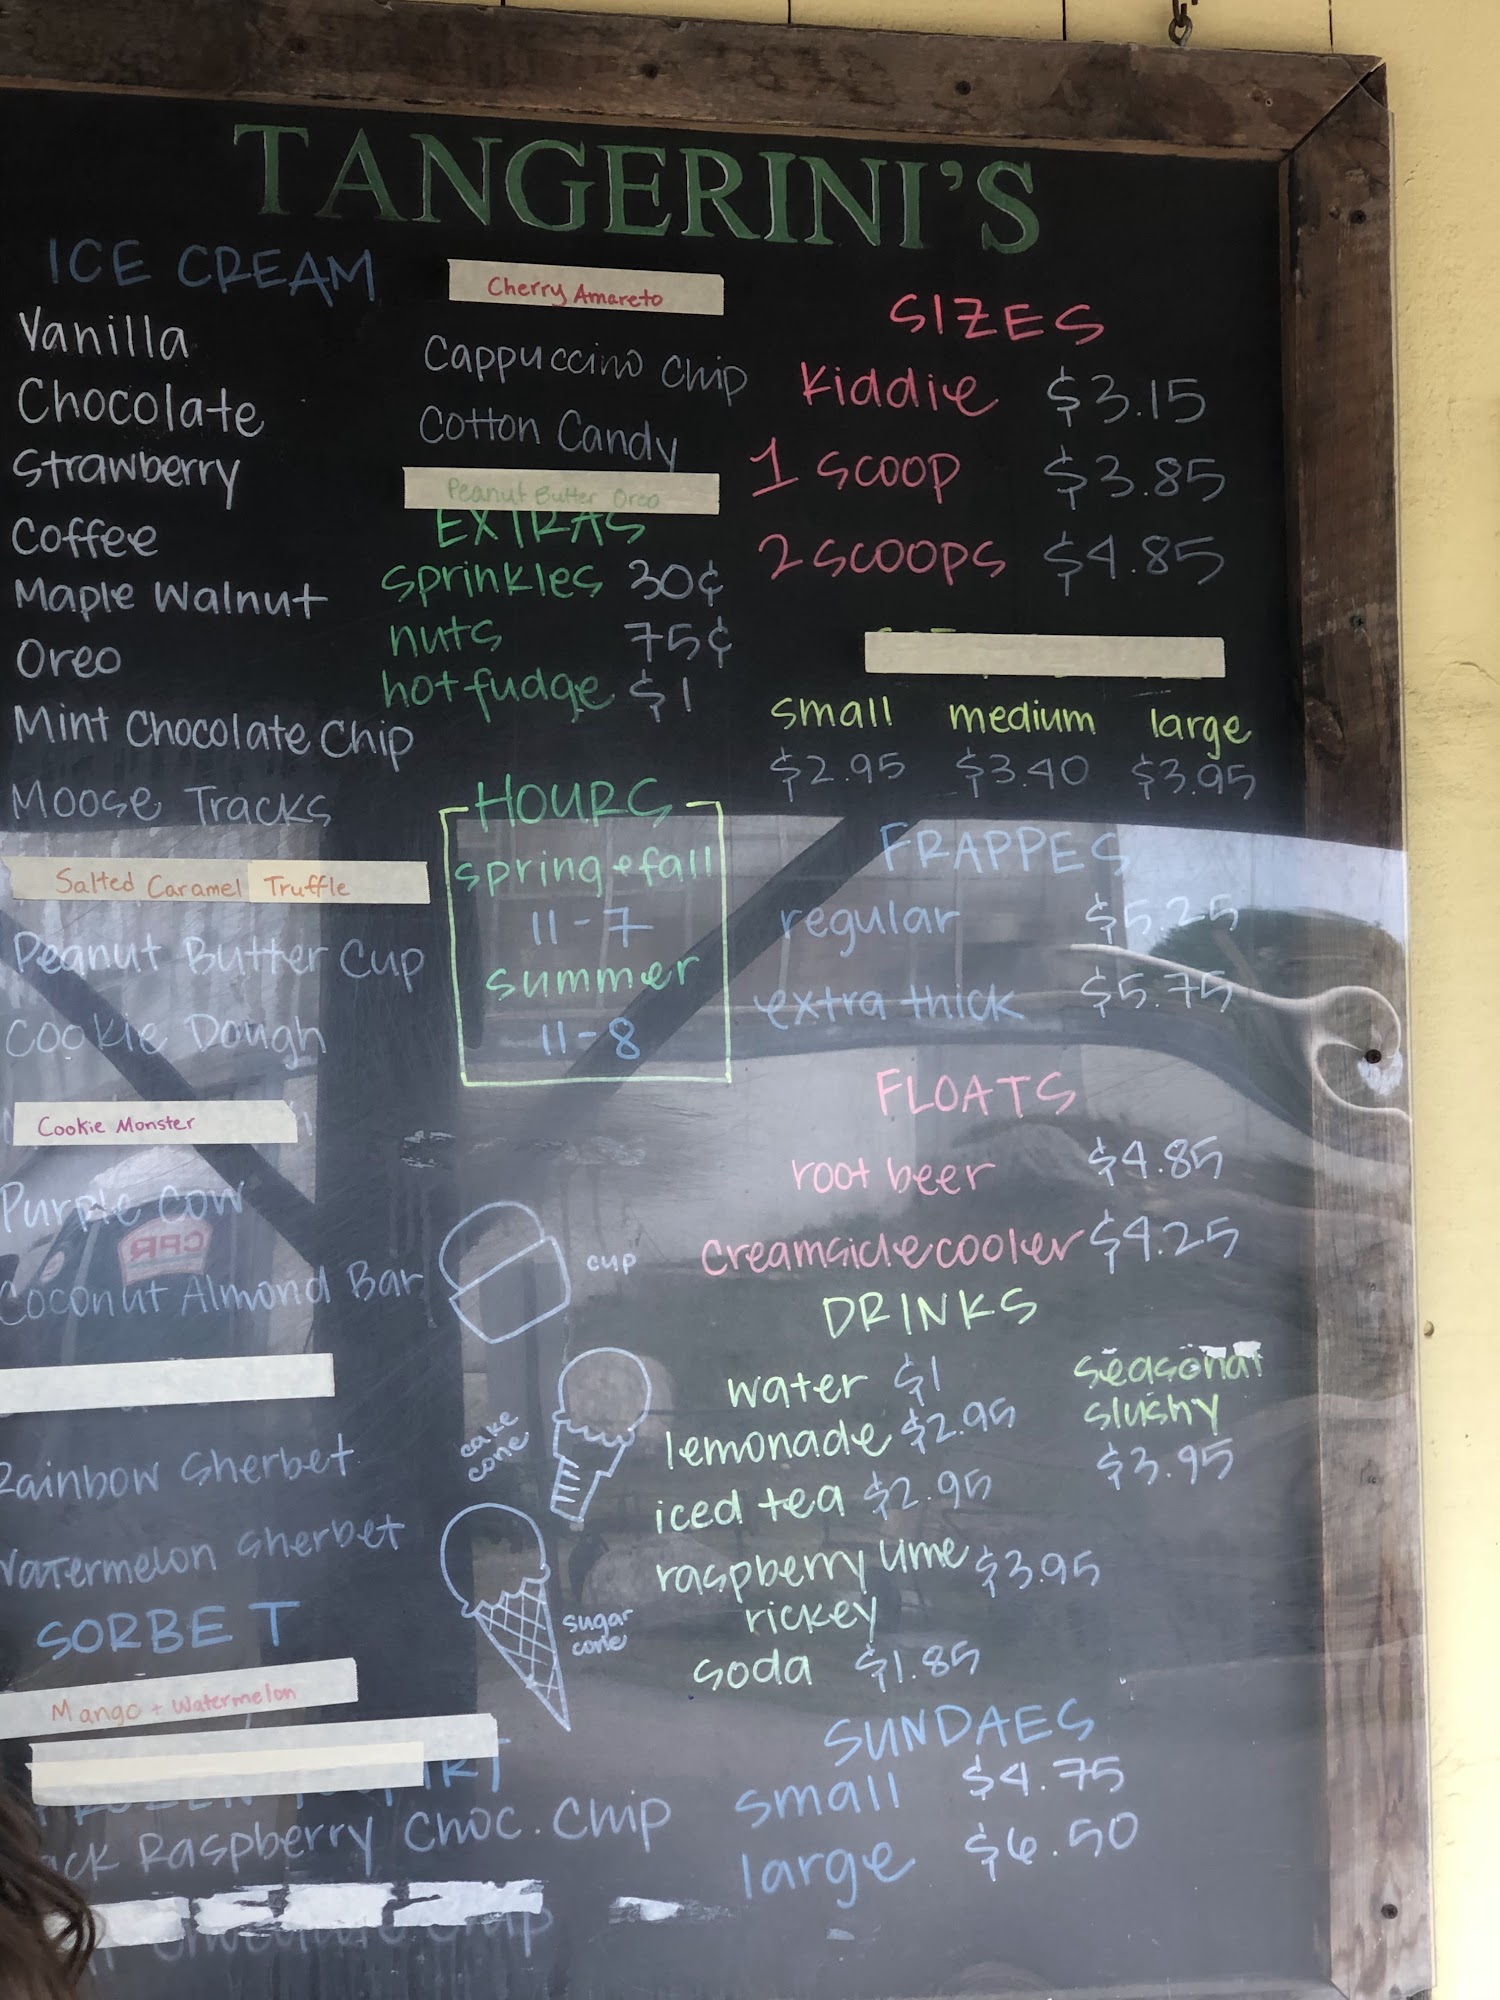 TANGERINI'S
ICE CREAM
Vanilla
Chocolate
Strawberry
Coffee
Maple Walnut
Oreo
Mint Chocolate Chip
Moose Tracks
Salted Caramel Truffle
Peanut Butter Cup
Cookie Dough
Cookie Monster
Purple Cow
Coconut Almond Bar
Rainbow Sherbet
Watermelon Sherbet
SORBET
Mango + Watermelon
Raspberry Choc. Chip
Cherry Amareto
Cappuccino Chip
Cotton Candy
Peanut Butter Oreo
EXTRAS
sprinkles 30¢
nuts 75¢
hot fudge $1
HOURS
spring + fall
11-7
summer
11-8
cup
cake
cone
sugar
cone
SIZES
kiddie $3.15
1 scoop $3.85
2 scoops $4.85
small medium large
$2.95 $3.40 $3.95
FRAPPES
regular $5.25
extra thick $5.75
FLOATS
root beer $4.85
creamsicle cooler $4.25
DRINKS
water $1
lemonade $2.95
iced tea $2.95
raspberry lime $3.95
rickey
soda $1.85
seasonal
slushy
$3.95
SUNDAES
small $4.75
large $6.50